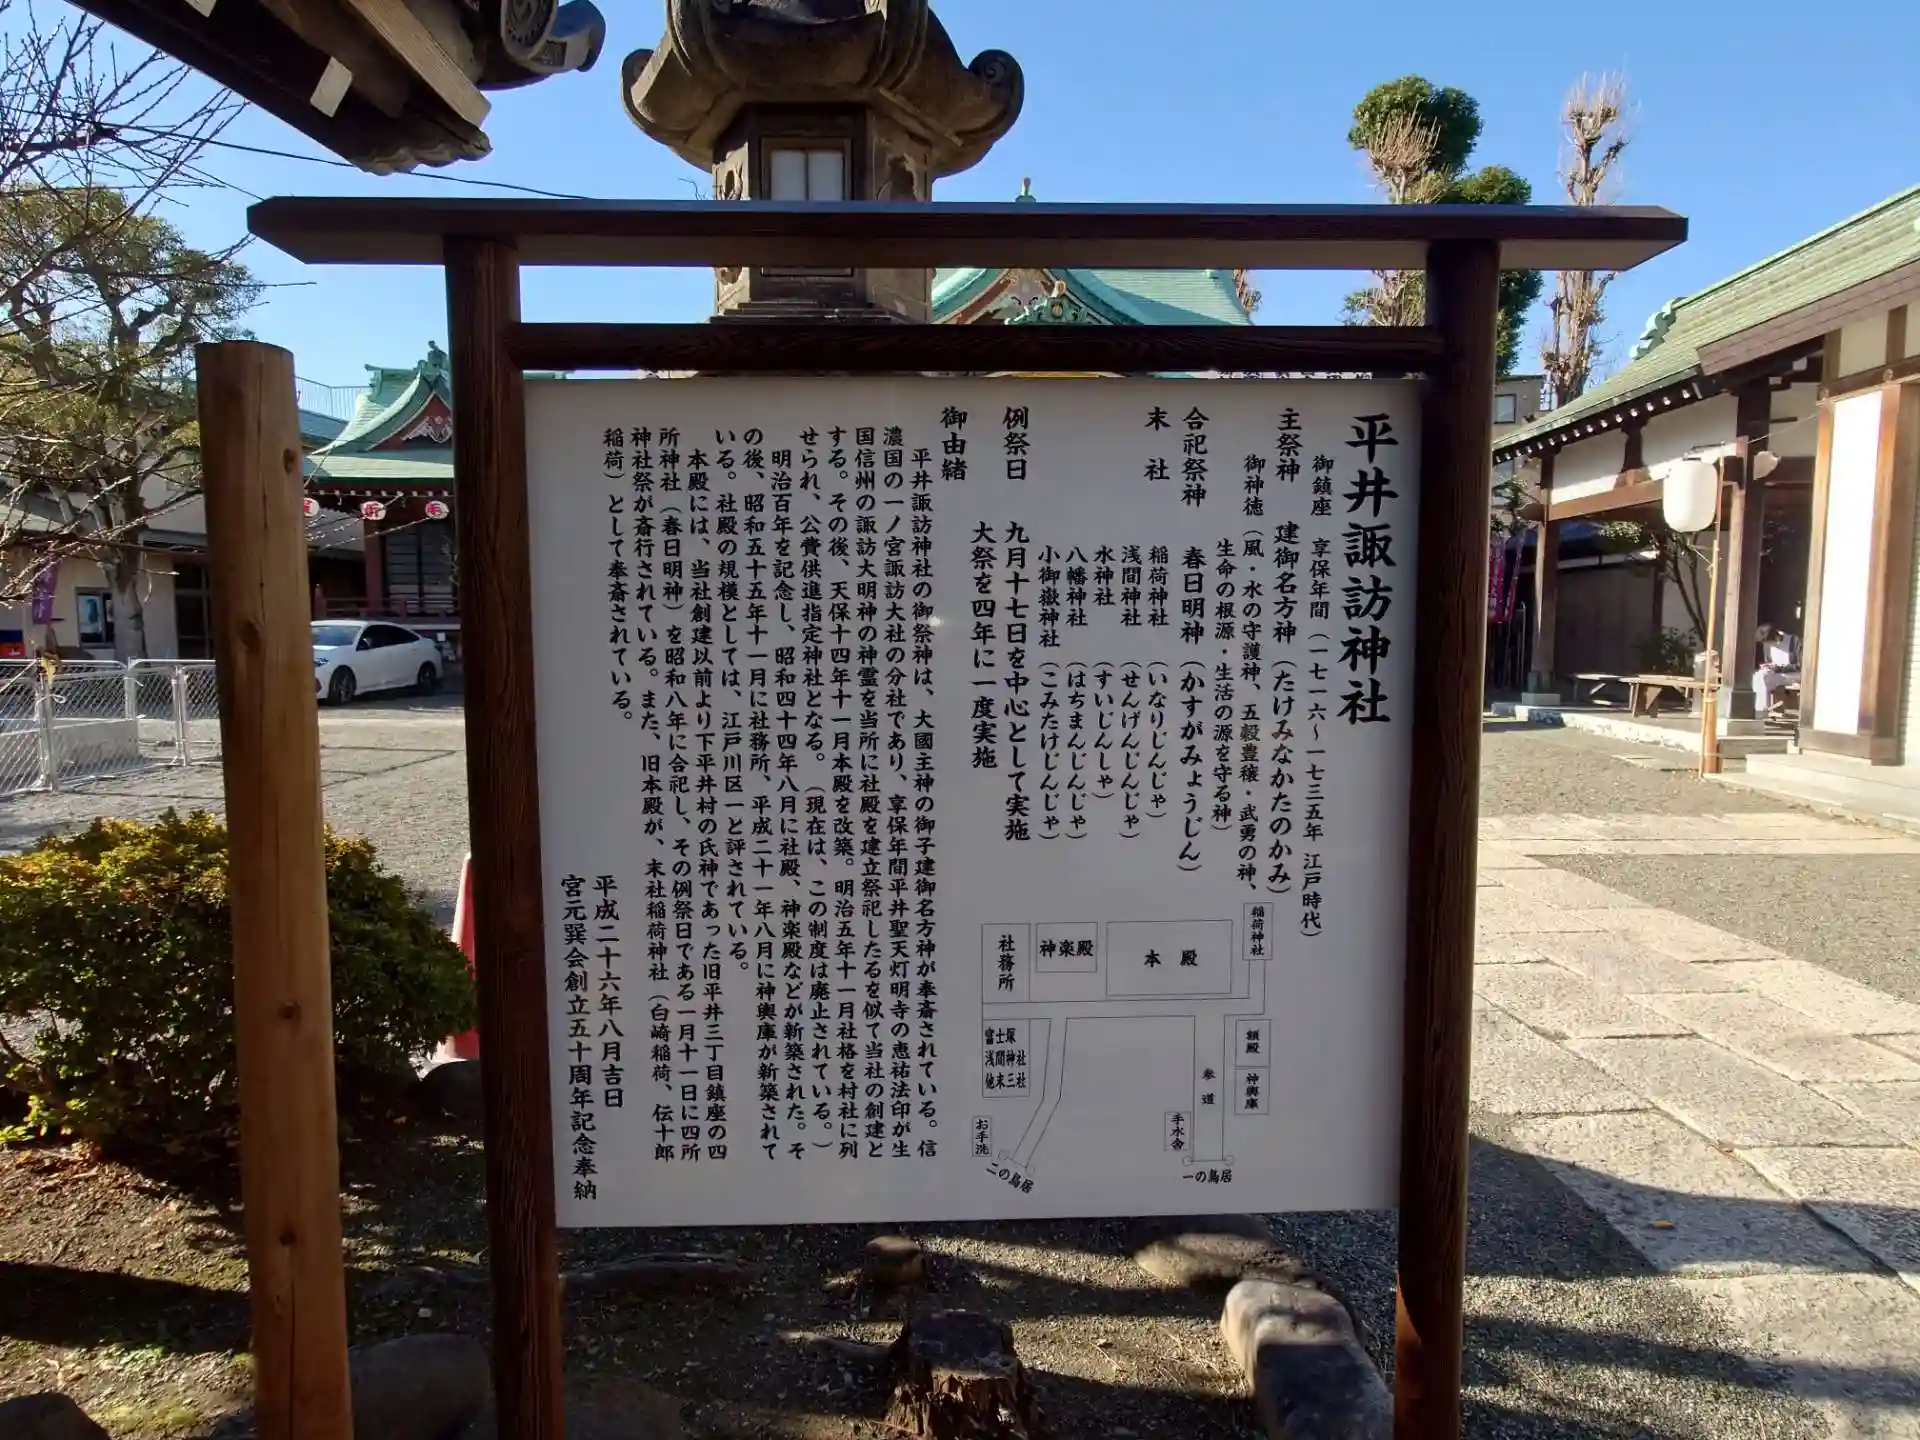 平井諏訪神社
御鎮座 享保年間(一七一六~一七三五年 江戸時代)
主祭神 建御名方神(たけみなかたのかみ)
御神徳(風・水の守護神、五穀豊穣・武勇の神、
生命の根源・生活の源を守る神)
合祀祭神 春日明神(かすがみょうじん)
末社 稲荷神社(いなりじんじゃ)
浅間神社(せんげんじんじゃ)
水神社(すいじんしゃ)
八幡神社(はちまんじんじゃ)
小御嶽神社(こみたけじんじゃ)
例祭日 九月十七日を中心として実施
大祭を四年に一度実施
御由緒
平井諏訪神社の御祭神は、大國主神の御子建御名方神が奉斎されている。信
濃国の一ノ宮諏訪大社の分社であり、享保年間平井聖天灯明寺の恵祐法印が生
国信州の諏訪大明神の神霊を当所に社殿を建立祭祀したるを似て当社の創建と
する。その後、天保十四年十一月本殿を改築。明治五年十一月社格を村社に列
せられ、公費供進指定神社となる。(現在は、この制度は廃止されている。)
明治百年を記念し、昭和四十四年八月に社殿、神楽殿などが新築された。そ
の後、昭和五十五年十一月に社務所、平成二十一年八月に神輿庫が新築されて
いる。社殿の規模としては、江戸川区一と評されている。
本殿には、当社創建以前より下平井村の氏神であった旧平井三丁目鎮座の四
所神社(春日明神)を昭和八年に合祀し、その例祭日である一月十一日に四所
神社祭が斎行されている。また、旧本殿が、末社稲荷神社(白崎稲荷、伝十郎
稲荷)として奉斎されている。
平成二十六年八月吉日
宮元巽会創立五十周年記念奉納
稲荷神社
本殿
神楽殿
社務所
富士塚
浅間神社
他末三社
額殿
神輿庫
参道
手水舎
お手洗
一の鳥居
二の鳥居